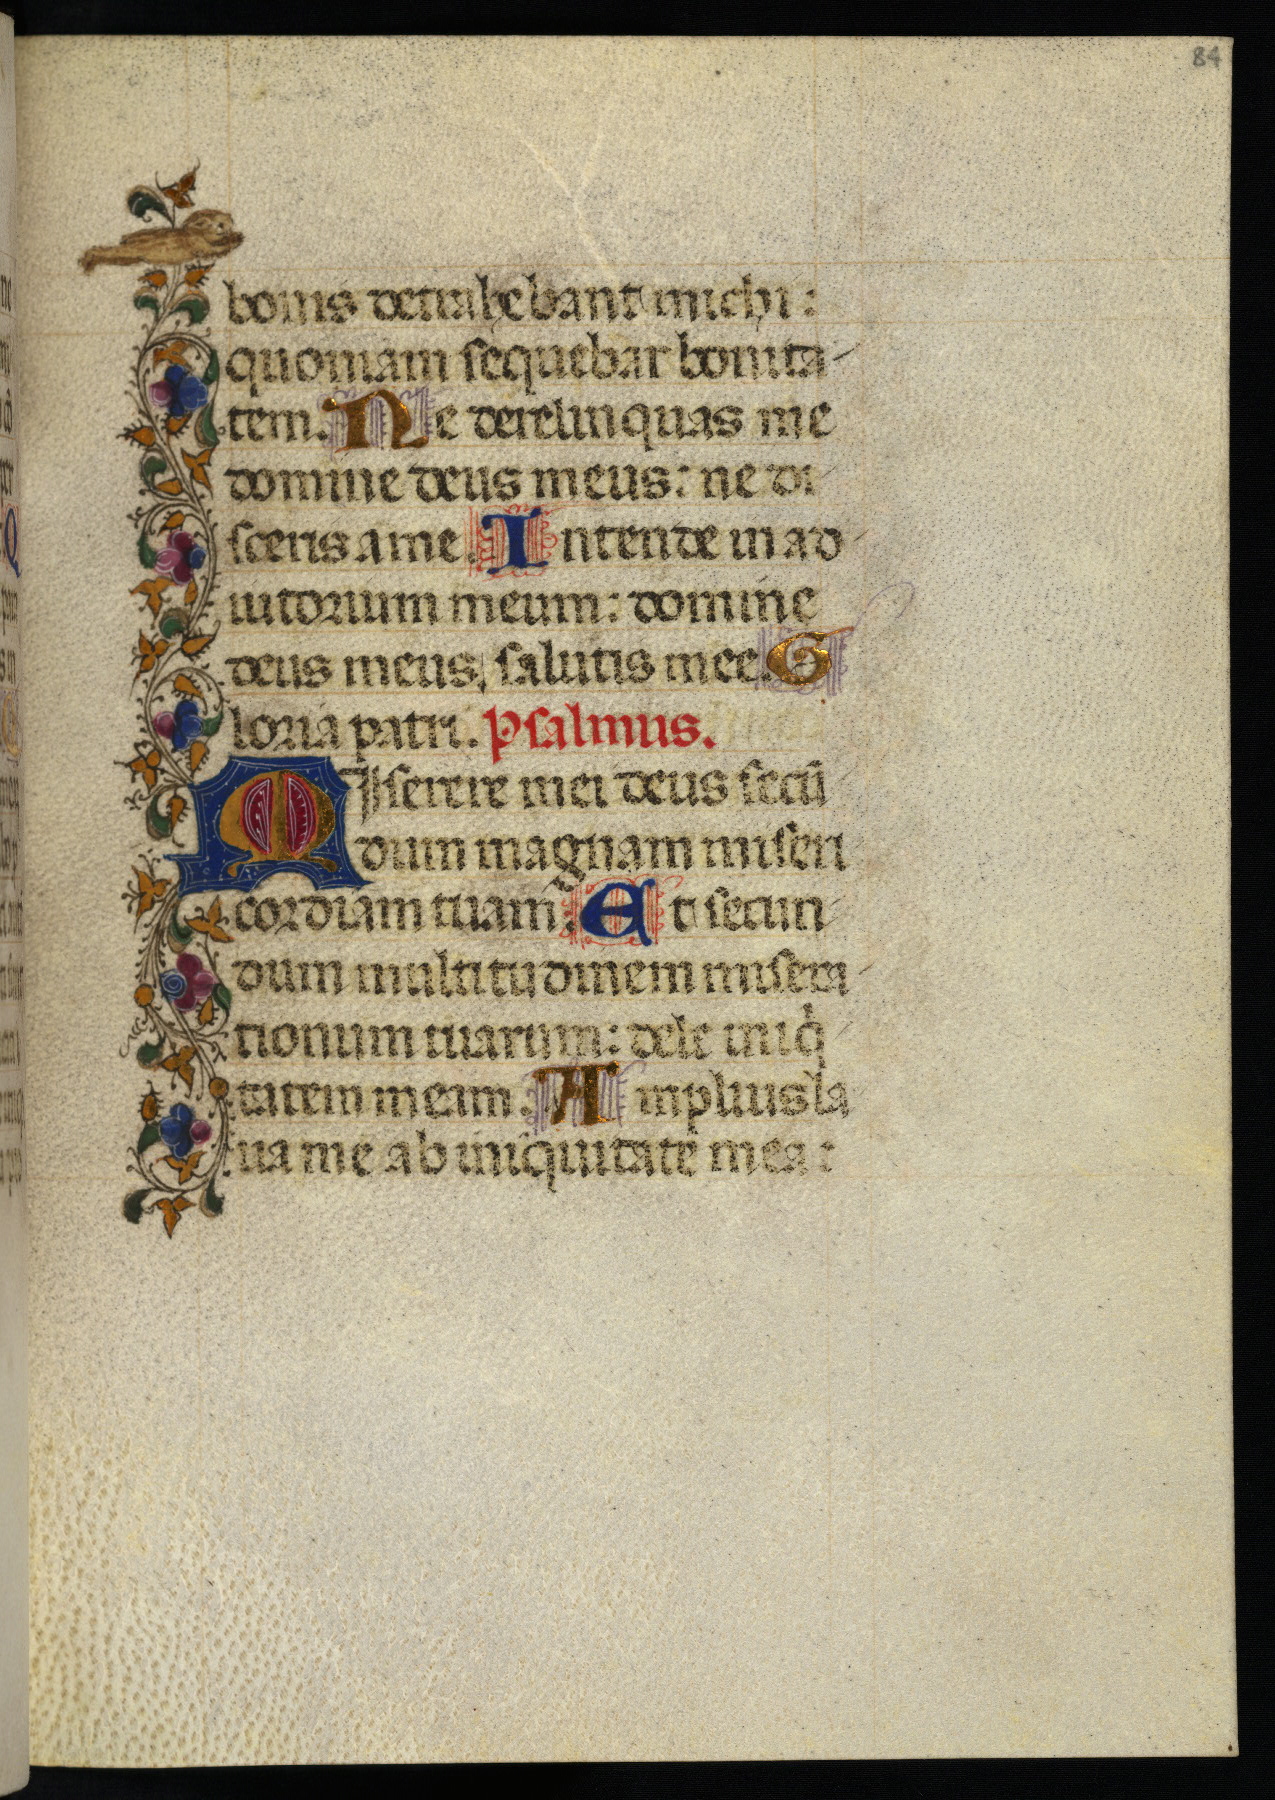 84
bonis detrahebant michi:
quoniam sequebar bonita-
tem. Ne derelinquas me
domine deus meus: ne di-
sceris a me. Intende in ad-
iutorium meum: domine
deus meus, salutis mee. G
loria patri. Psalmus.
Miserere mei deus secũ
dum magnam miseri
cordiam tuam. Et secun
dum multitudinem misera-
tionum tuarum: dele iniq̇
tatem meam. Amplius la
ua me ab iniquitate mea: